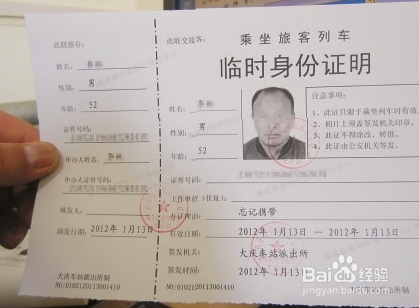 此联留存:
姓名:
性别: 男
年龄: 52
证件号码:
申办人姓名:
申办人证件号码:
填发人:
填发日期: 2012年 1月13日
大庆车站派出所制
NO:0102120113001410
此联交旅客:
乘坐旅客列车
临时身份证明
姓名:
性别: 男
年龄: 52
证件号码:
工作单位(住址):
办证理由: 忘记携带
有效日期: 2012年 1月13日 — 2012年 1月13日
签发机关: 大庆车站派出所
签发时间: 2012年 1月13日
大庆车站派出所制
NO:0102120113001410
注意事项:
1、此证只限于乘坐列车时有效。
2、相片上须盖签发机关印章。
3、此证不得涂改、转借。
4、此证由公安机关签发。
Baidu经验
jingyan.baidu.com